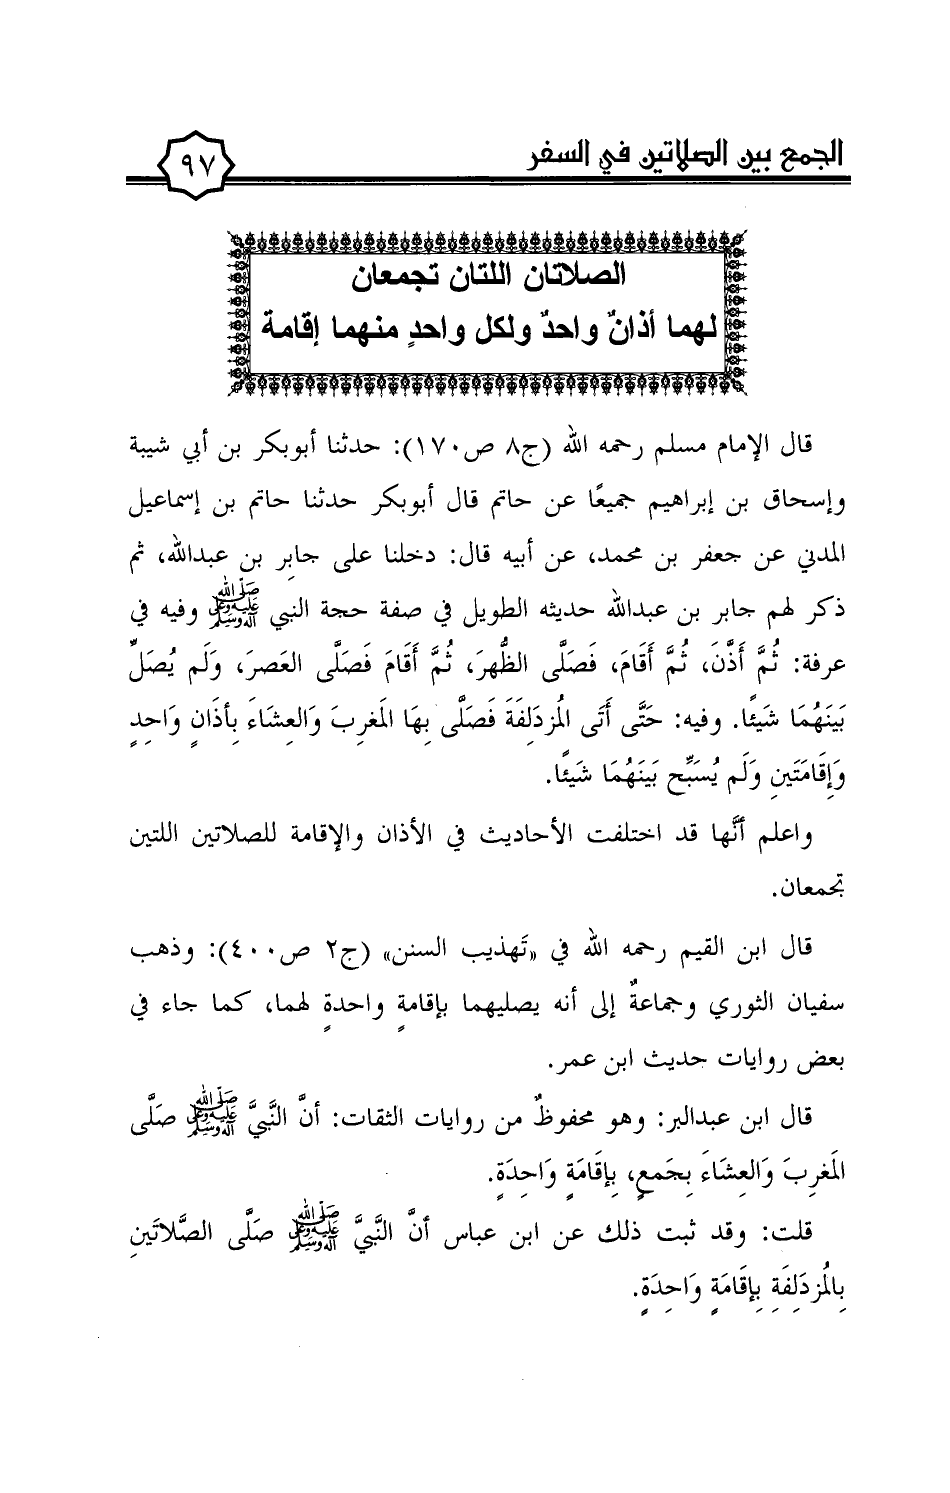 الجمع بين الصلاتين في السفر
٩٧
الصلاتان اللتان تجمعان
لهما أذانٌ واحدٌ ولكل واحدٍ منهما إقامة
قال الإمام مسلم رحمه الله (ج٨ ص١٧٠): حدثنا أبوبكر بن أبي شيبة
وإسحاق بن إبراهيم جميعًا عن حاتم قال أبوبكر حدثنا حاتم بن إسماعيل
المدني عن جعفر بن محمد، عن أبيه قال: دخلنا على جابرِ بن عبدالله، ثم
ذكر لهم جابر بن عبدالله حديثه الطويل في صفة حجة النبي ﷺ وفيه في
عرفة: ثُمَّ أَذَّنَ، ثُمَّ أَقَامَ، فَصَلَّى الظُّهرَ، ثُمَّ أَقَامَ فَصَلَّى العَصرَ، وَلَم يُصَلِّ
بَينَهُمَا شَيئًا. وفيه: حَتَّى أَتَى المُزدَلفَةَ فَصَلَّى بِهَا المَغربَ وَالعِشَاءَ بِأَذَانٍ وَاحِدٍ
وَإِقَامَتَينِ وَلَم يُسَبِّح بَينَهُمَا شَيئًا.
واعلم أنَّها قد اختلفت الأحاديث في الأذان والإقامة للصلاتين اللتين
تجمعان.
قال ابن القيم رحمه الله في «تَهذيب السنن» (ج٢ ص٤٠٠): وذهب
سفيان الثوري وجماعةٌ إلى أنه يصليهما بإقامةٍ واحدةٍ لهما، كما جاء في
بعض روايات حديث ابن عمر.
قال ابن عبدالبر: وهو محفوظٌ من روايات الثقات: أنَّ النَّبِيَّ ﷺ صَلَّى
المَغرِبَ وَالعِشَاءَ بِجَمعٍ، بِإِقَامَةٍ وَاحِدَةٍ.
قلت: وقد ثبت ذلك عن ابن عباس أنَّ النَّبِيَّ ﷺ صَلَّى الصَّلاَتَينِ
بِالمُزدَلِفَةِ بِإِقَامَةٍ وَاحِدَةٍ.